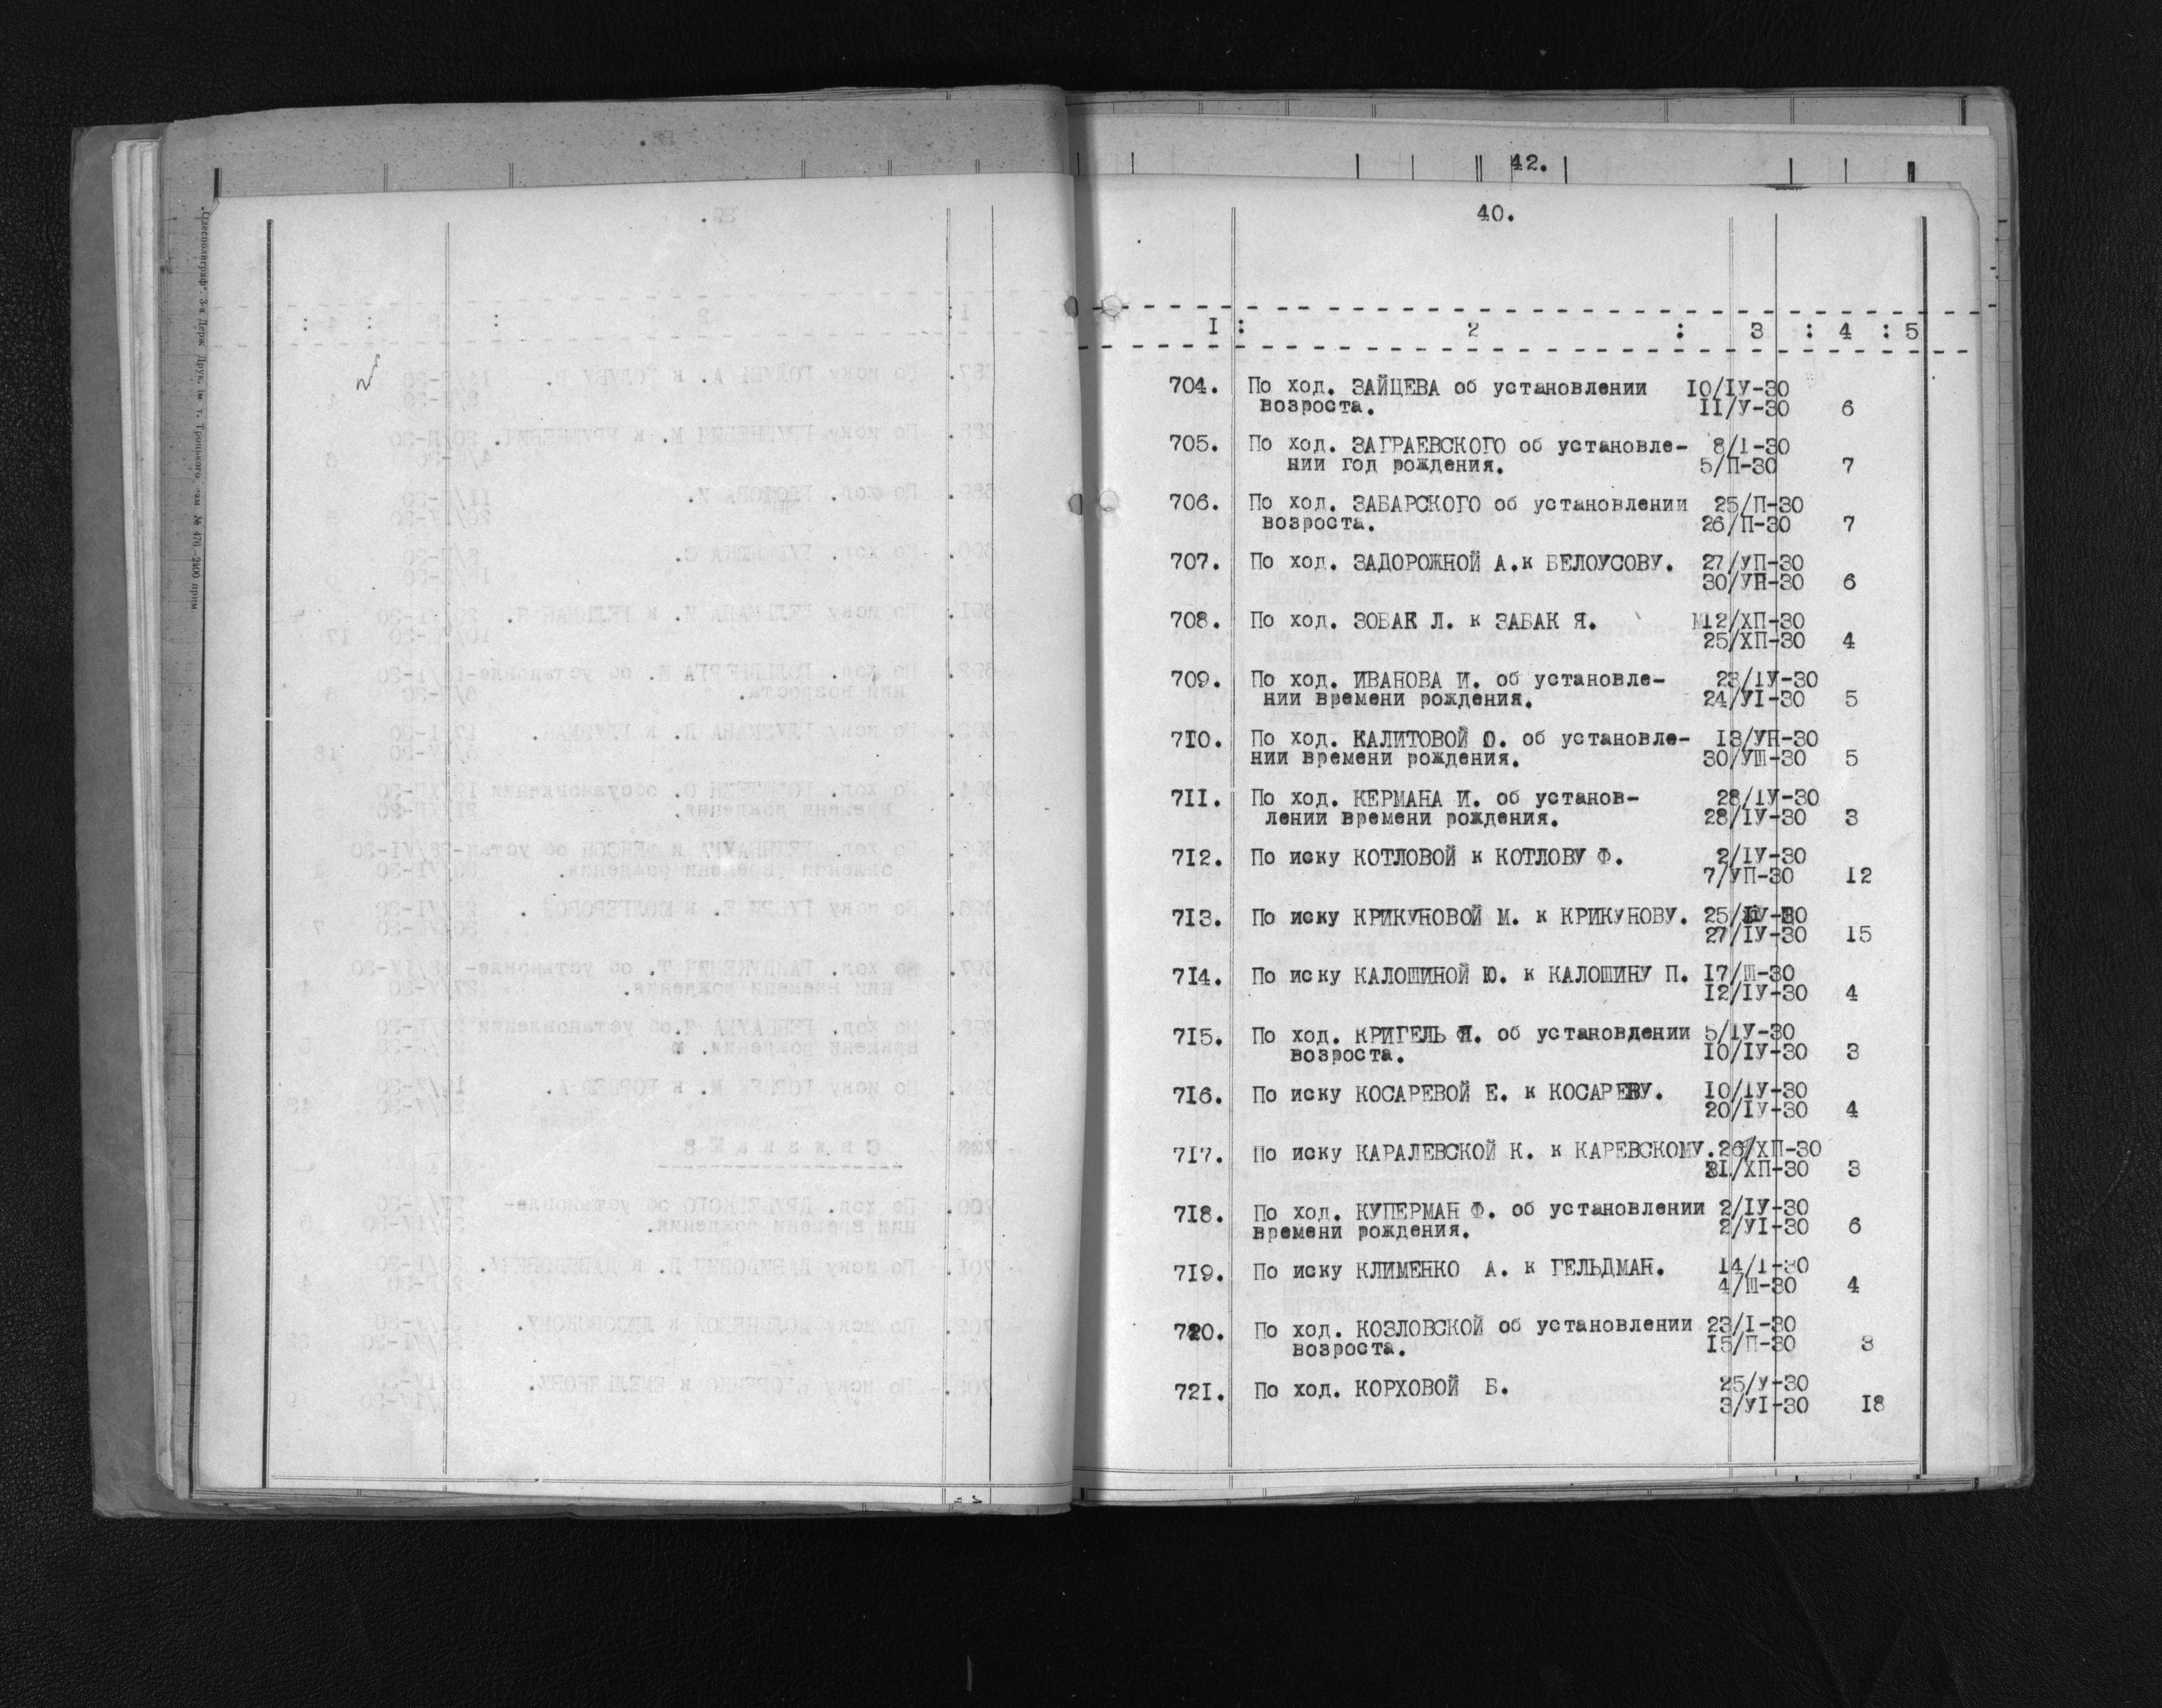 42.
40.
I : 2 : 3 : 4 : 5
704. По ход. ЗАЙЦЕВА об установлении 10/IУ-30
возроста. II/У-30 6
705. По ход. ЗАГРАЕВСКОГО об установле- 8/I-30
нии год рождения. 5/П-30 7
706. По ход. ЗАБАРСКОГО об установлении 25/П-30
возроста. 26/П-30 7
707. По ход. ЗАДОРОЖНОЙ А.к БЕЛОУСОВУ. 27/УП-30
30/УП-30 6
708. По ход. ЗОБАК Л. к ЗАБАК Я. 12/ХП-30
25/ХП-30 4
709. По ход. ИВАНОВА И. об установле- 23/IУ-30
нии времени рождения. 24/УI-30 5
710. По ход. КАЛИТОВОЙ О. об установле- 13/УП-30
нии времени рождения. 30/УШ-30 5
7II. По ход. КЕРМАНА И. об установ- 28/IУ-30
лении времени рождения. 28/IУ-30 3
7I2. По иску КОТЛОВОЙ к КОТЛОВУ Ф. 2/IУ-30
7/УП-30 I2
7I3. По иску КРИКУНОВОЙ М. к КРИКУНОВУ. 25/IУ-30
27/IУ-30 I5
7I4. По иску КАЛОШИНОЙ Ю. к КАЛОШИНУ П. I7/Ш-30
I2/IУ-30 4
7I5. По ход. КРИГЕЛЬ Я. об установлении 5/IУ-30
возроста. I0/IУ-30 3
7I6. По иску КОСАРЕВОЙ Е. к КОСАРЕВУ. I0/IУ-30
20/IУ-30 4
7I7. По иску КАРАЛЕВСКОЙ К. к КАРЕВСКОМУ. 26/ХП-30
31/ХП-30 3
7I8. По ход. КУПЕРМАН Ф. об установлении 2/IУ-30
времени рождения. 2/УI-30 6
7I9. По иску КЛИМЕНКО А. к ГЕЛЬДМАН. I4/I-30
4/Ш-30 4
720. По ход. КОЗЛОВСКОЙ об установлении 23/I-30
возроста. I5/П-30 3
72I. По ход. КОРХОВОЙ Б. 25/У-30
3/УI-30 I8